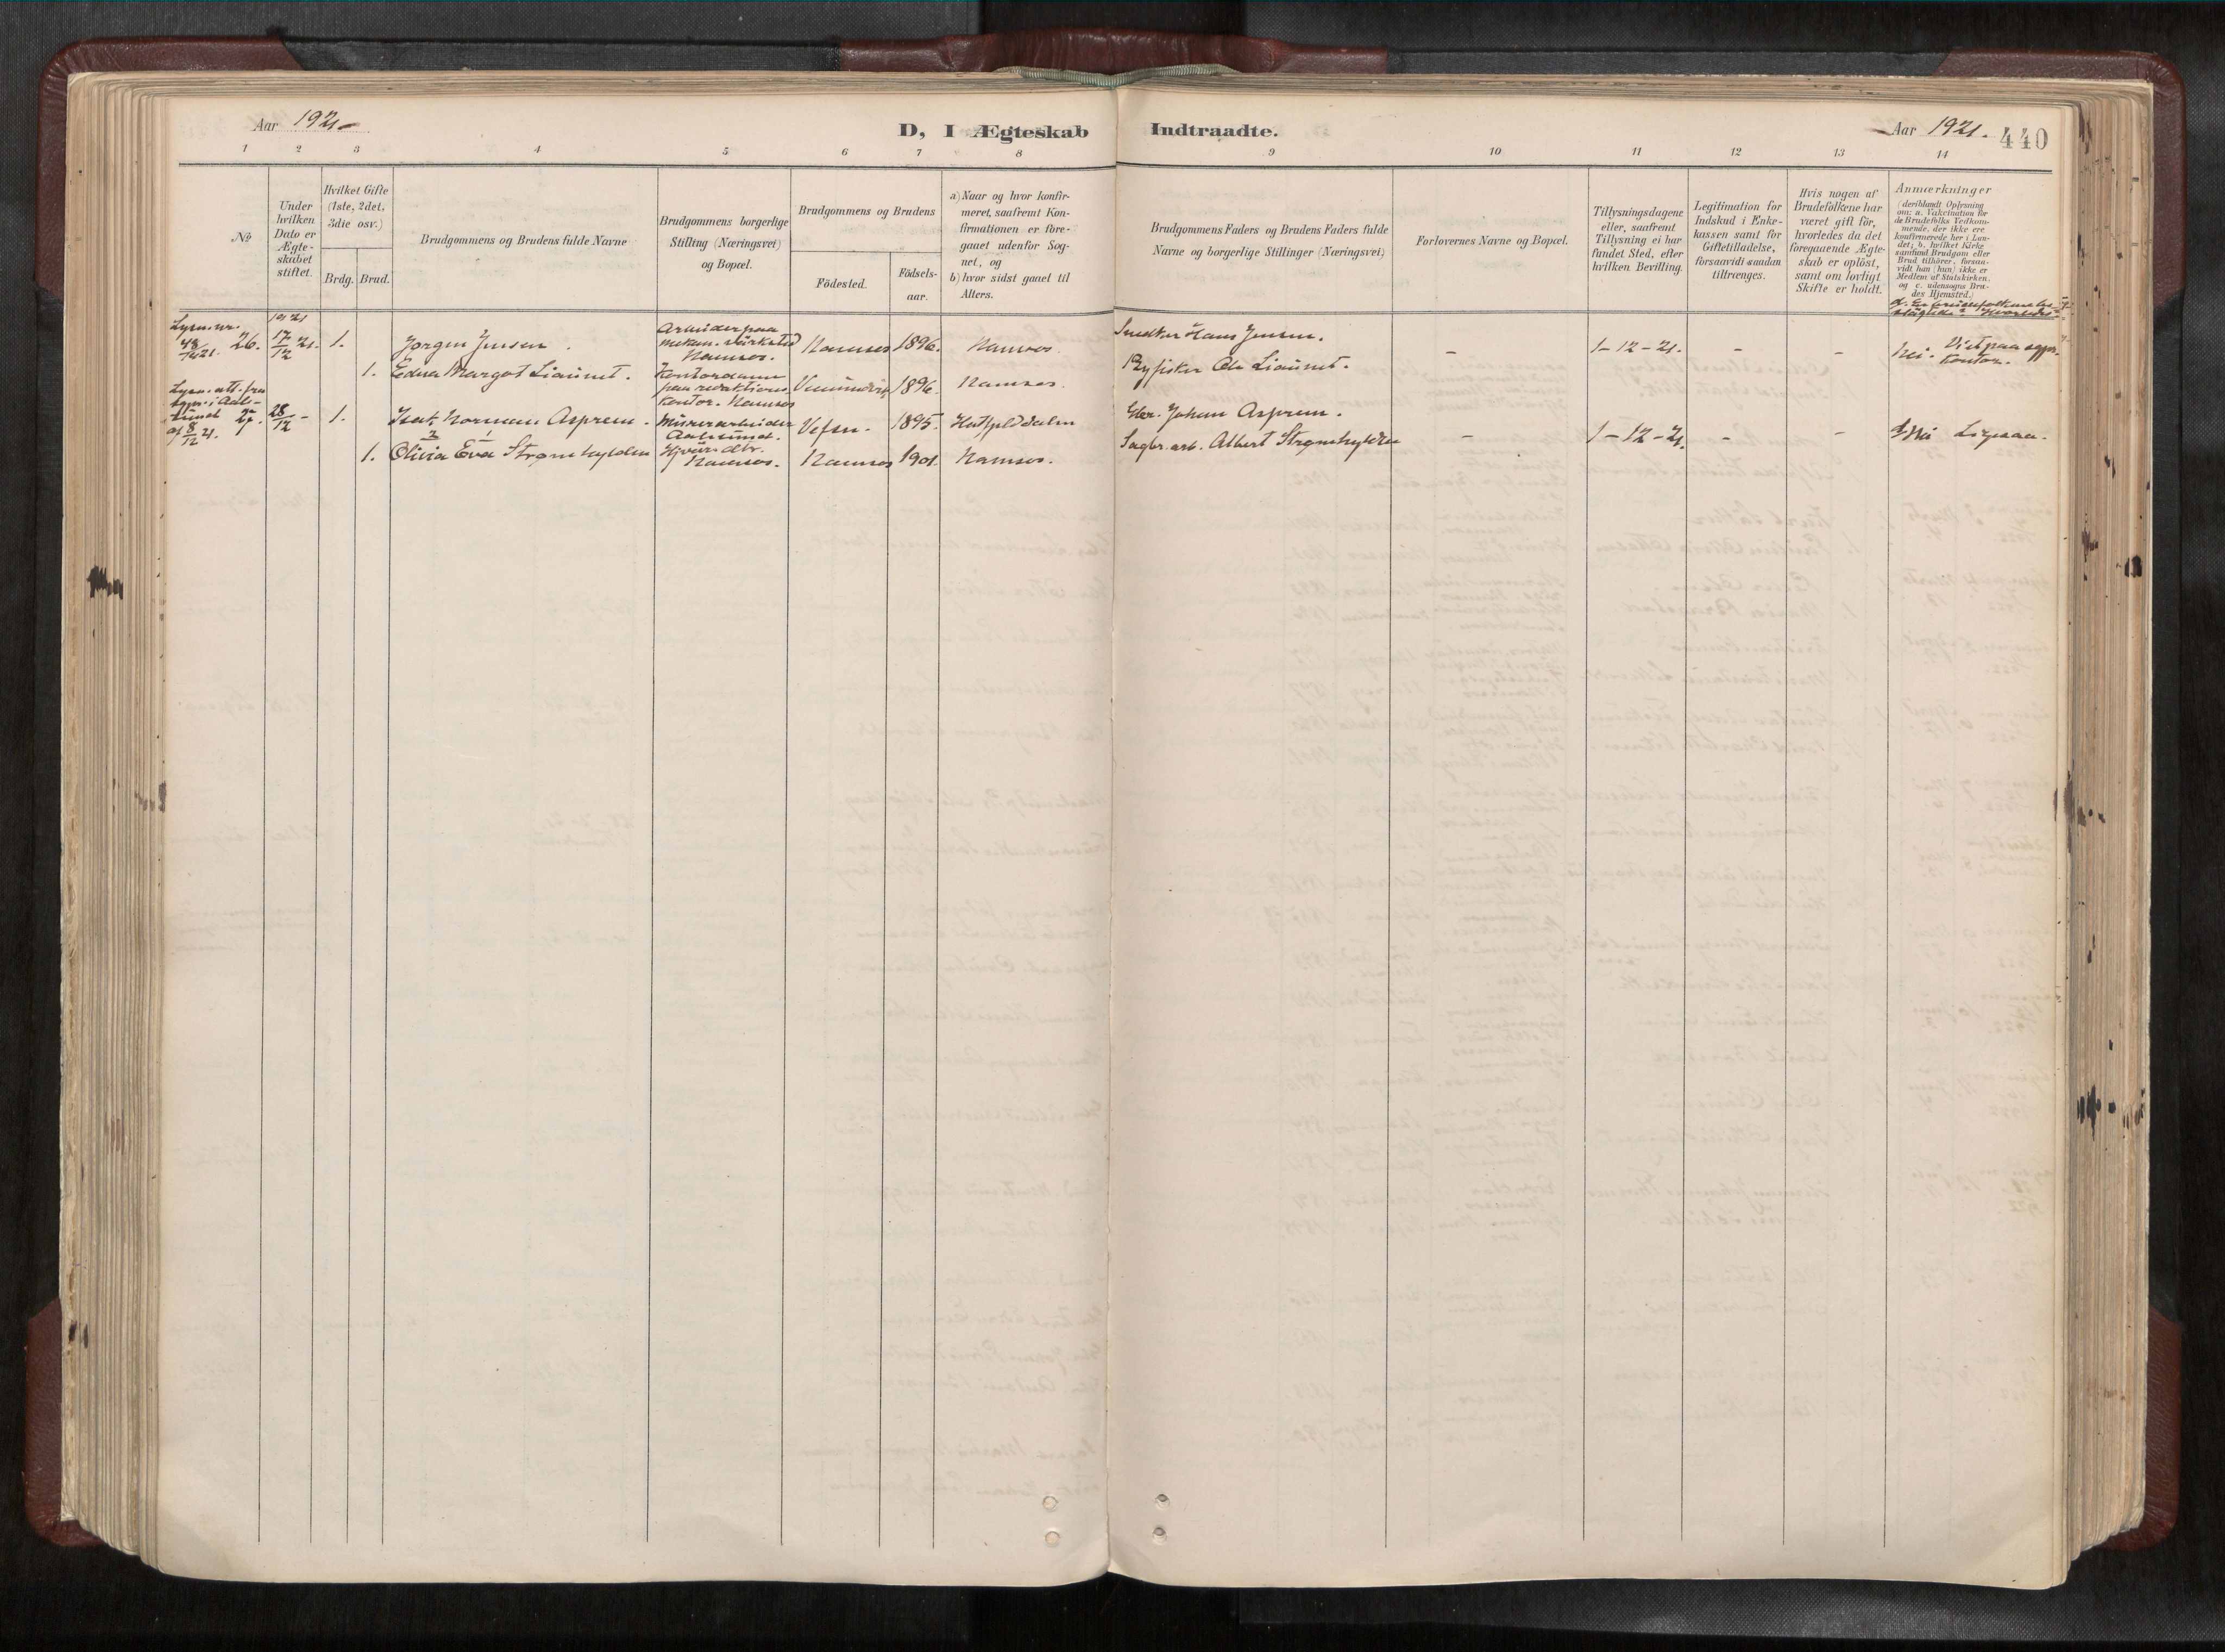 Aar 1921
D, I Ægteskab Indtraadte.
Aar 1921.
440
1 2 3 4 5 6 7 8 9 10 11 12 13 14
No
Under hvilken Dato er Ægteskabet stiftet.
Hvilket Gifte (1ste, 2det, 3die osv.)
Brdg. Brud.
Brudgommens og Brudens fulde Navne
Brudgommens borgerlige Stilling (Næringsvei) og Bopæl.
Brudgommens og Brudens
Födested.
Födselsaar.
a) Naar og hvor konfirmeret, saafremt Konfirmationen er foregaaet udenfor Sognet, og
b) hvor sidst gaaet til Alters.
Brudgommens Faders og Brudens Faders fulde Navne og borgerlige Stillinger (Næringsvei)
Forlovernes Navne og Bopæl.
Tillysningsdagene eller, saafremt Tillysning ei har fundet Sted, efter hvilken Bevilling.
Legitimation for Indskud i Enkekassen samt for Giftetilladelse, forsaavidt saadan tiltrænges.
Hvis nogen af Brudefolkene har været gift för, hvorledes da det foregaaende Ægteskab er oplöst, samt om lovligt Skifte er holdt.
Anmærkninger
(deriblandt Oplysning om: a. Vakcination for de Brudefolks Vedkommende, der ikke ere konfirmerede her i Landet; b. hvilket Kirkesamfund Brudgom eller Brud tilhörer, forsaavidt han (hun) ikke er Medlem af Statskirken, og c. udensogns Brudes Hjemsted.)
1921
26. 17/12 21. 1. Jørgen Jensen. Arbeider paa mekan. værksted Namsos. Namsos 1896. Namsos. Snedker Hans Jensen. - 1-12-21. - - Nei. Viet paa sgpr. kontor.
1. Edna Margot Liaunet. Kontordame paa redaktionskontor. Namsos 1896. Namsos. Ole Liaunet.
Lysn. att. fra sgpr. i Aalesund af 8/12 21.
27. 28/12 - 1. Isak Norman Asprem. Murerarbeider Aalesund. Vefsn. 1895. Hatfjelddalen Gbr. Johan Asprem. - 1-12-21. - - Nei Ligesaa.
1. Olivia Eva Strømhylden Namsos. Namsos 1901 Namsos. Sagbr. arb. Albert Strømhylden